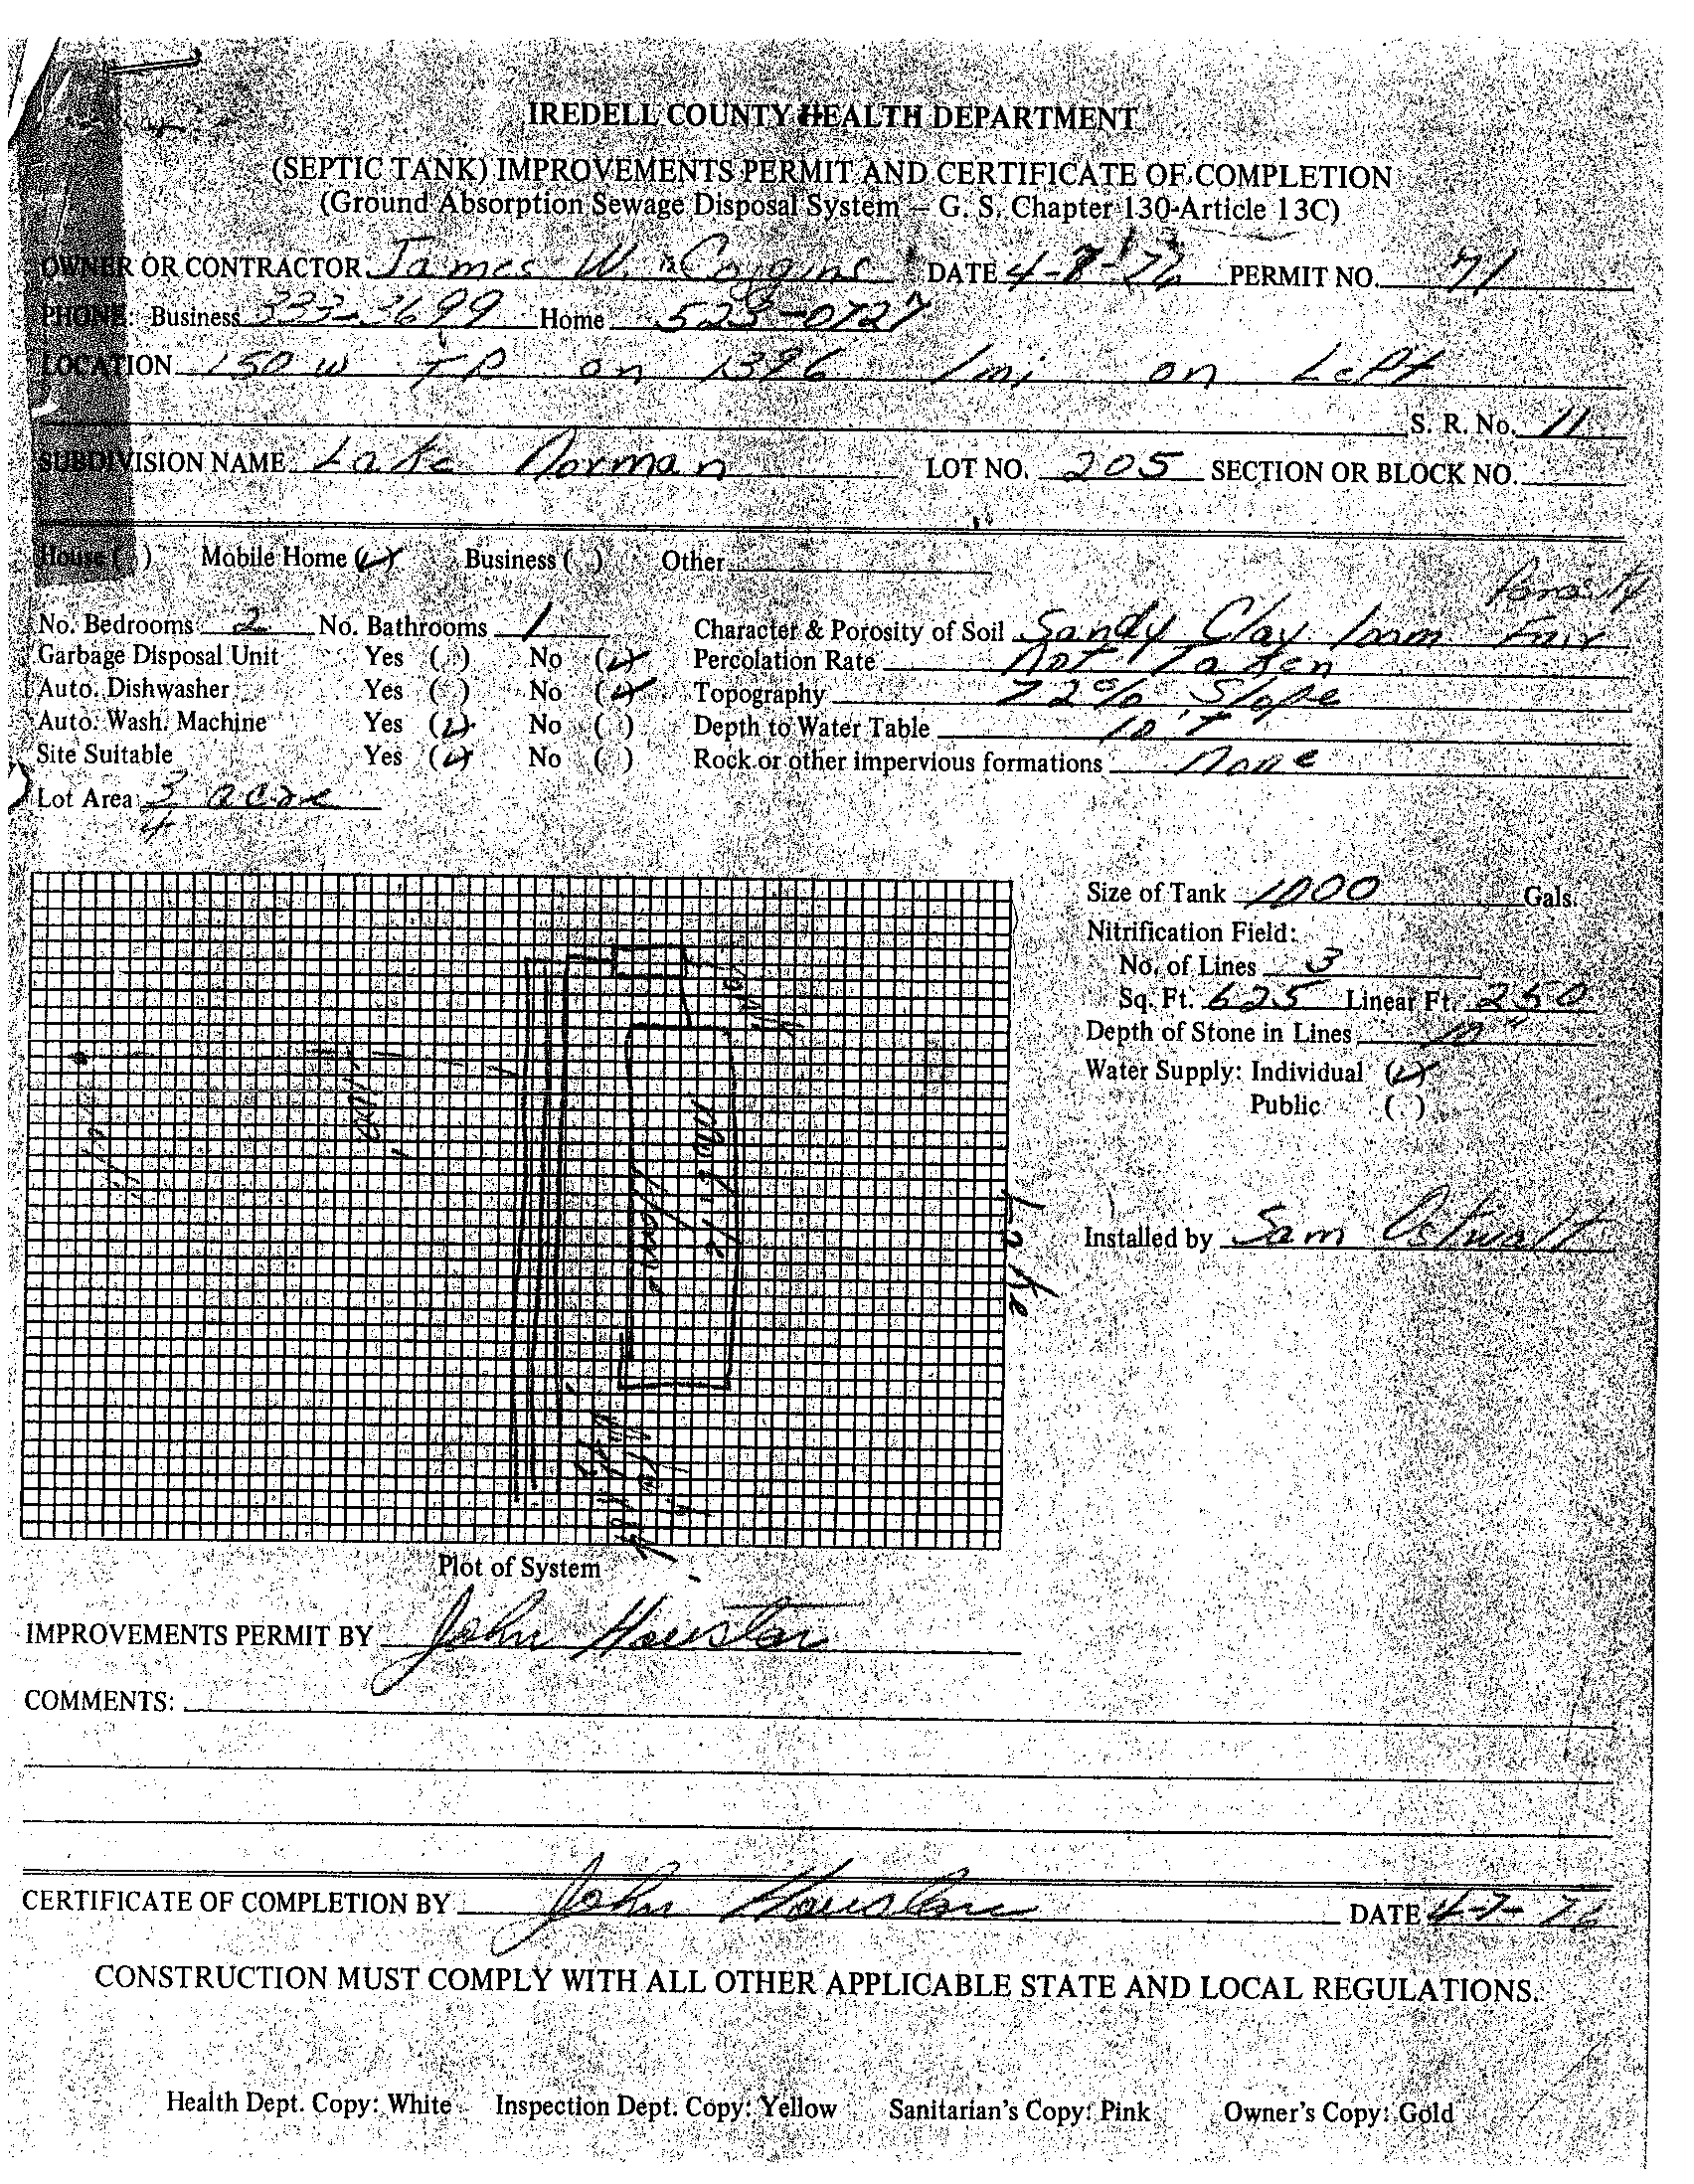 IREDELL COUNTY HEALTH DEPARTMENT
(SEPTIC TANK) IMPROVEMENTS PERMIT AND CERTIFICATE OF COMPLETION
(Ground Absorption Sewage Disposal System – G. S. Chapter 130-Article 13C)
OWNER OR CONTRACTOR James W. Coggins DATE 4-7-76 PERMIT NO. 71
PHONE: Business 333-3699 Home 523-0727
LOCATION 150 W TR on 1396 1 mi on Left
S. R. No. 11
SUBDIVISION NAME Lake Norman LOT NO. 205 SECTION OR BLOCK NO.
House ( ) Mobile Home (✓) Business ( ) Other
Porosity
No. Bedrooms 2 No. Bathrooms 1 Character & Porosity of Soil Sandy Clay loam Fair
Garbage Disposal Unit Yes ( ) No (✓) Percolation Rate Not Taken
Auto. Dishwasher Yes ( ) No (✓) Topography 22% Slope
Auto. Wash. Machine Yes (✓) No ( ) Depth to Water Table 10'+
Site Suitable Yes (✓) No ( ) Rock or other impervious formations None
Lot Area 3/4 acre
Size of Tank 1000 Gals.
Nitrification Field:
No. of Lines 3
Sq. Ft. 625 Linear Ft. 250
Depth of Stone in Lines 12"
Water Supply: Individual (✓)
Public ( )
Mobile
Home
Lake
Installed by Sam Ostwalt
Plot of System
IMPROVEMENTS PERMIT BY John Houston
COMMENTS:
CERTIFICATE OF COMPLETION BY John Houston DATE 4-7-76
CONSTRUCTION MUST COMPLY WITH ALL OTHER APPLICABLE STATE AND LOCAL REGULATIONS.
Health Dept. Copy: White Inspection Dept. Copy: Yellow Sanitarian's Copy: Pink Owner's Copy: Gold